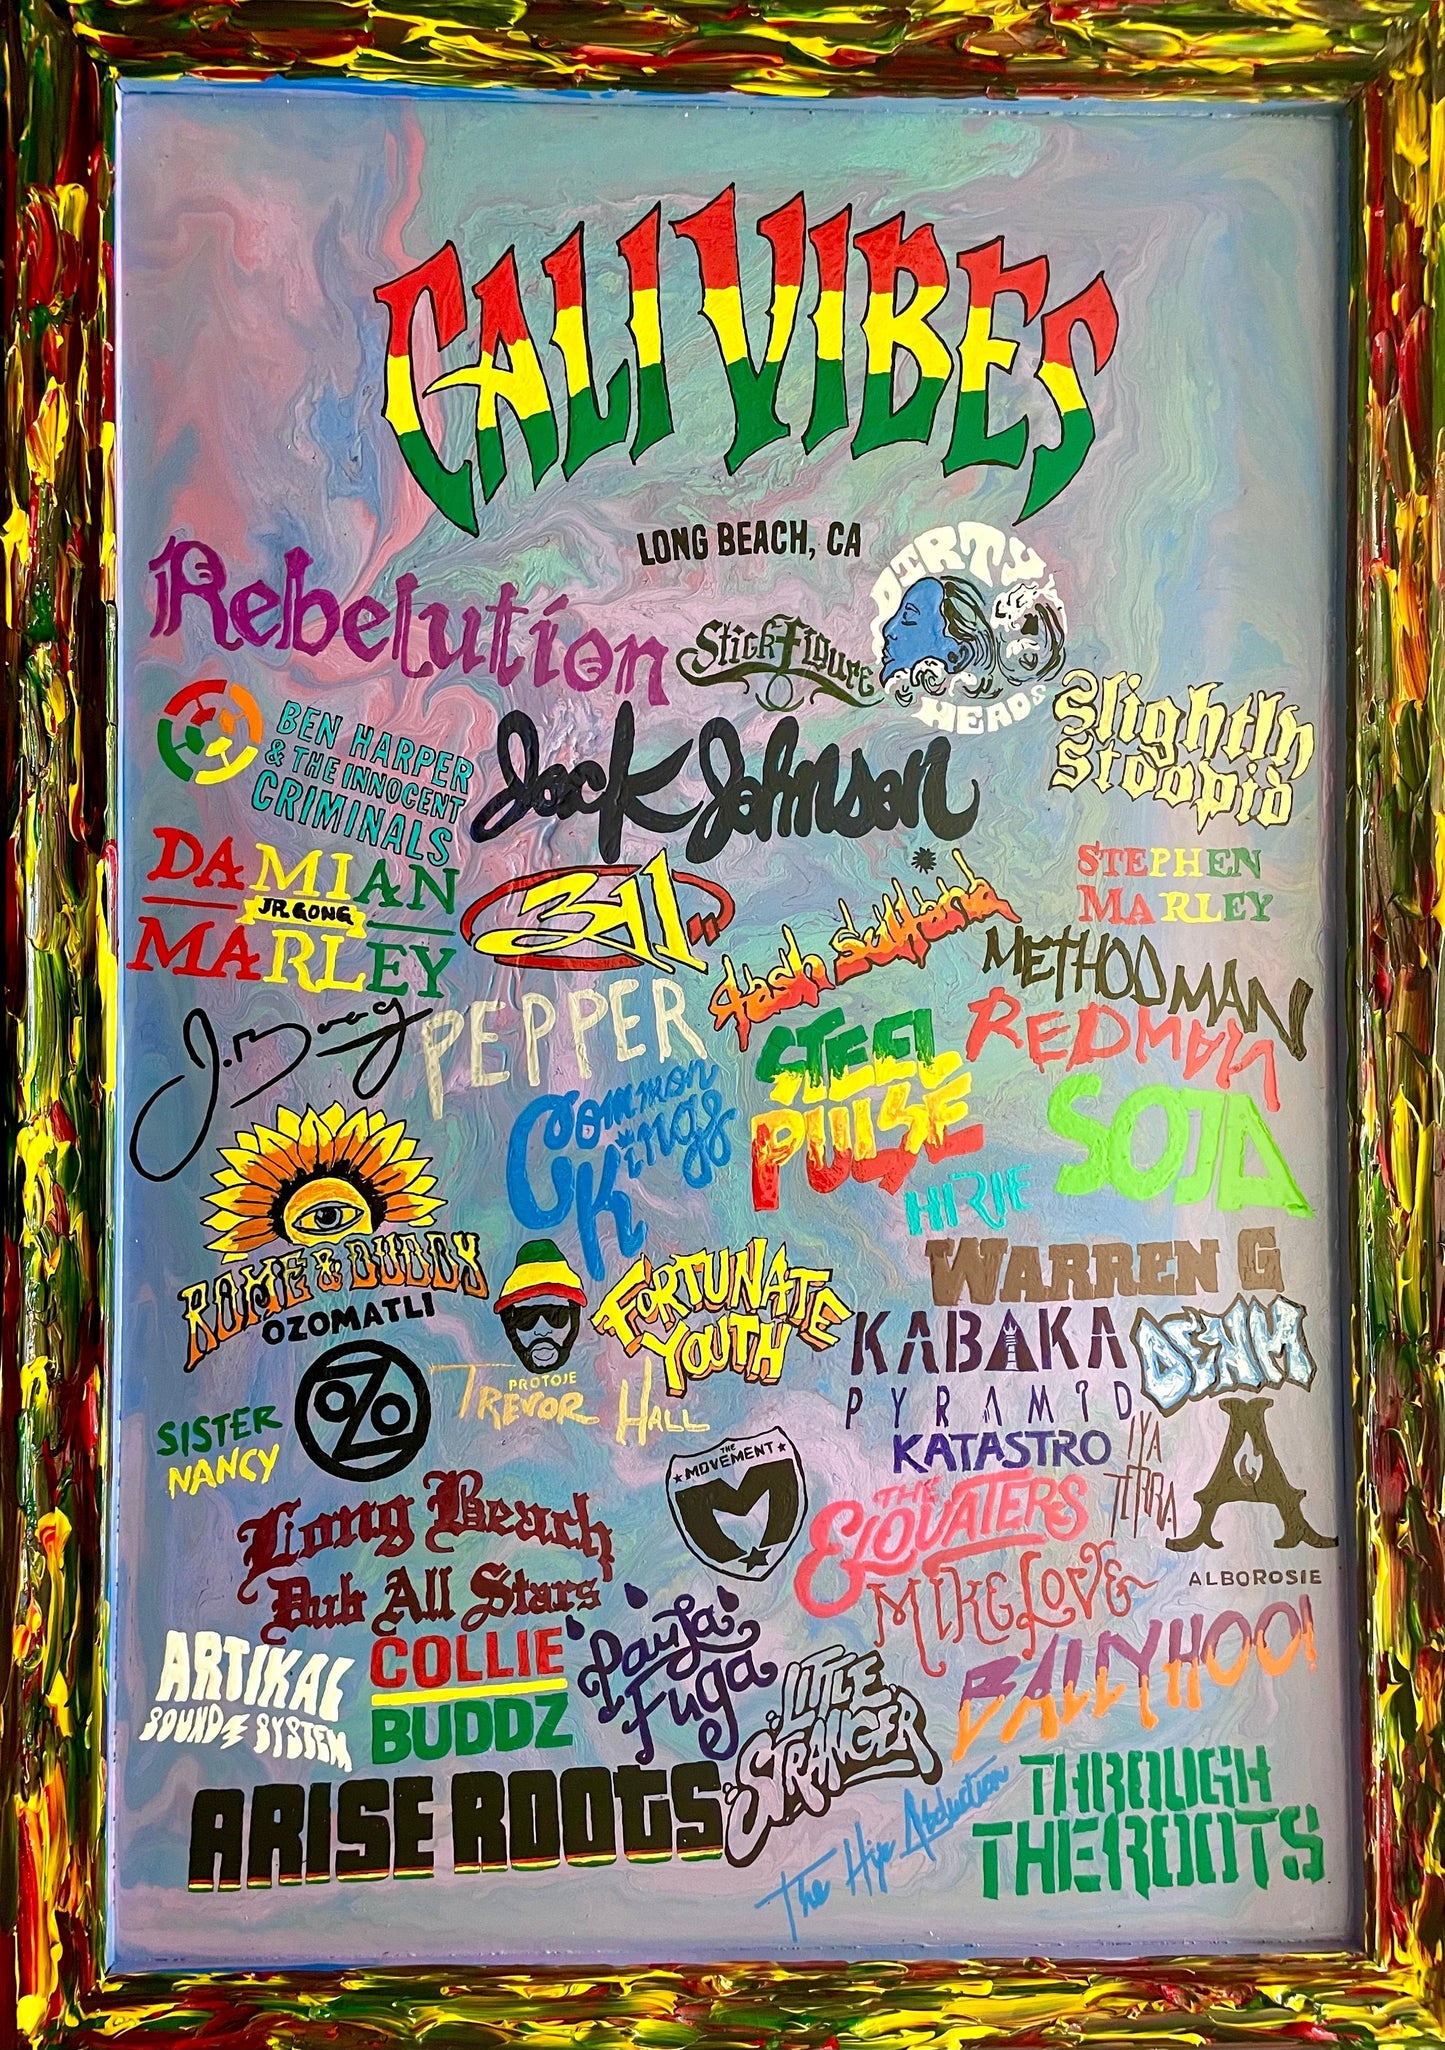 CALI VIBES
LONG BEACH, CA
Rebelution
Stick Figure
DIRTY
HEADS
Slightly
Stoopid
BEN HARPER
& THE INNOCENT
CRIMINALS
Jack Johnson
DAMIAN
JR. GONG
MARLEY
311
tash sultana
STEPHEN
MARLEY
METHOD MAN
REDMAN
J. Boog
PEPPER
Common
Kings
STEEL
PULSE
HIRIE
SOJA
ROME & DUDDY
OZOMATLI
OZO
PROTOJE
FORTUNATE
YOUTH
WARREN G
KABAKA
PYRAMID
DENM
TREVOR HALL
SISTER
NANCY
KATASTRO
IYA
TERRA
A
ALBOROSIE
THE
MOVEMENT
M
THE
ELOVATERS
MIKE LOVE
Long Beach
Dub All Stars
ARTIKAL
SOUND SYSTEM
COLLIE
BUDDZ
Paula
Fuga
LITTLE
STRANGER
BALLYHOO!
ARISE ROOTS
The Hip Abduction
THROUGH
THE ROOTS